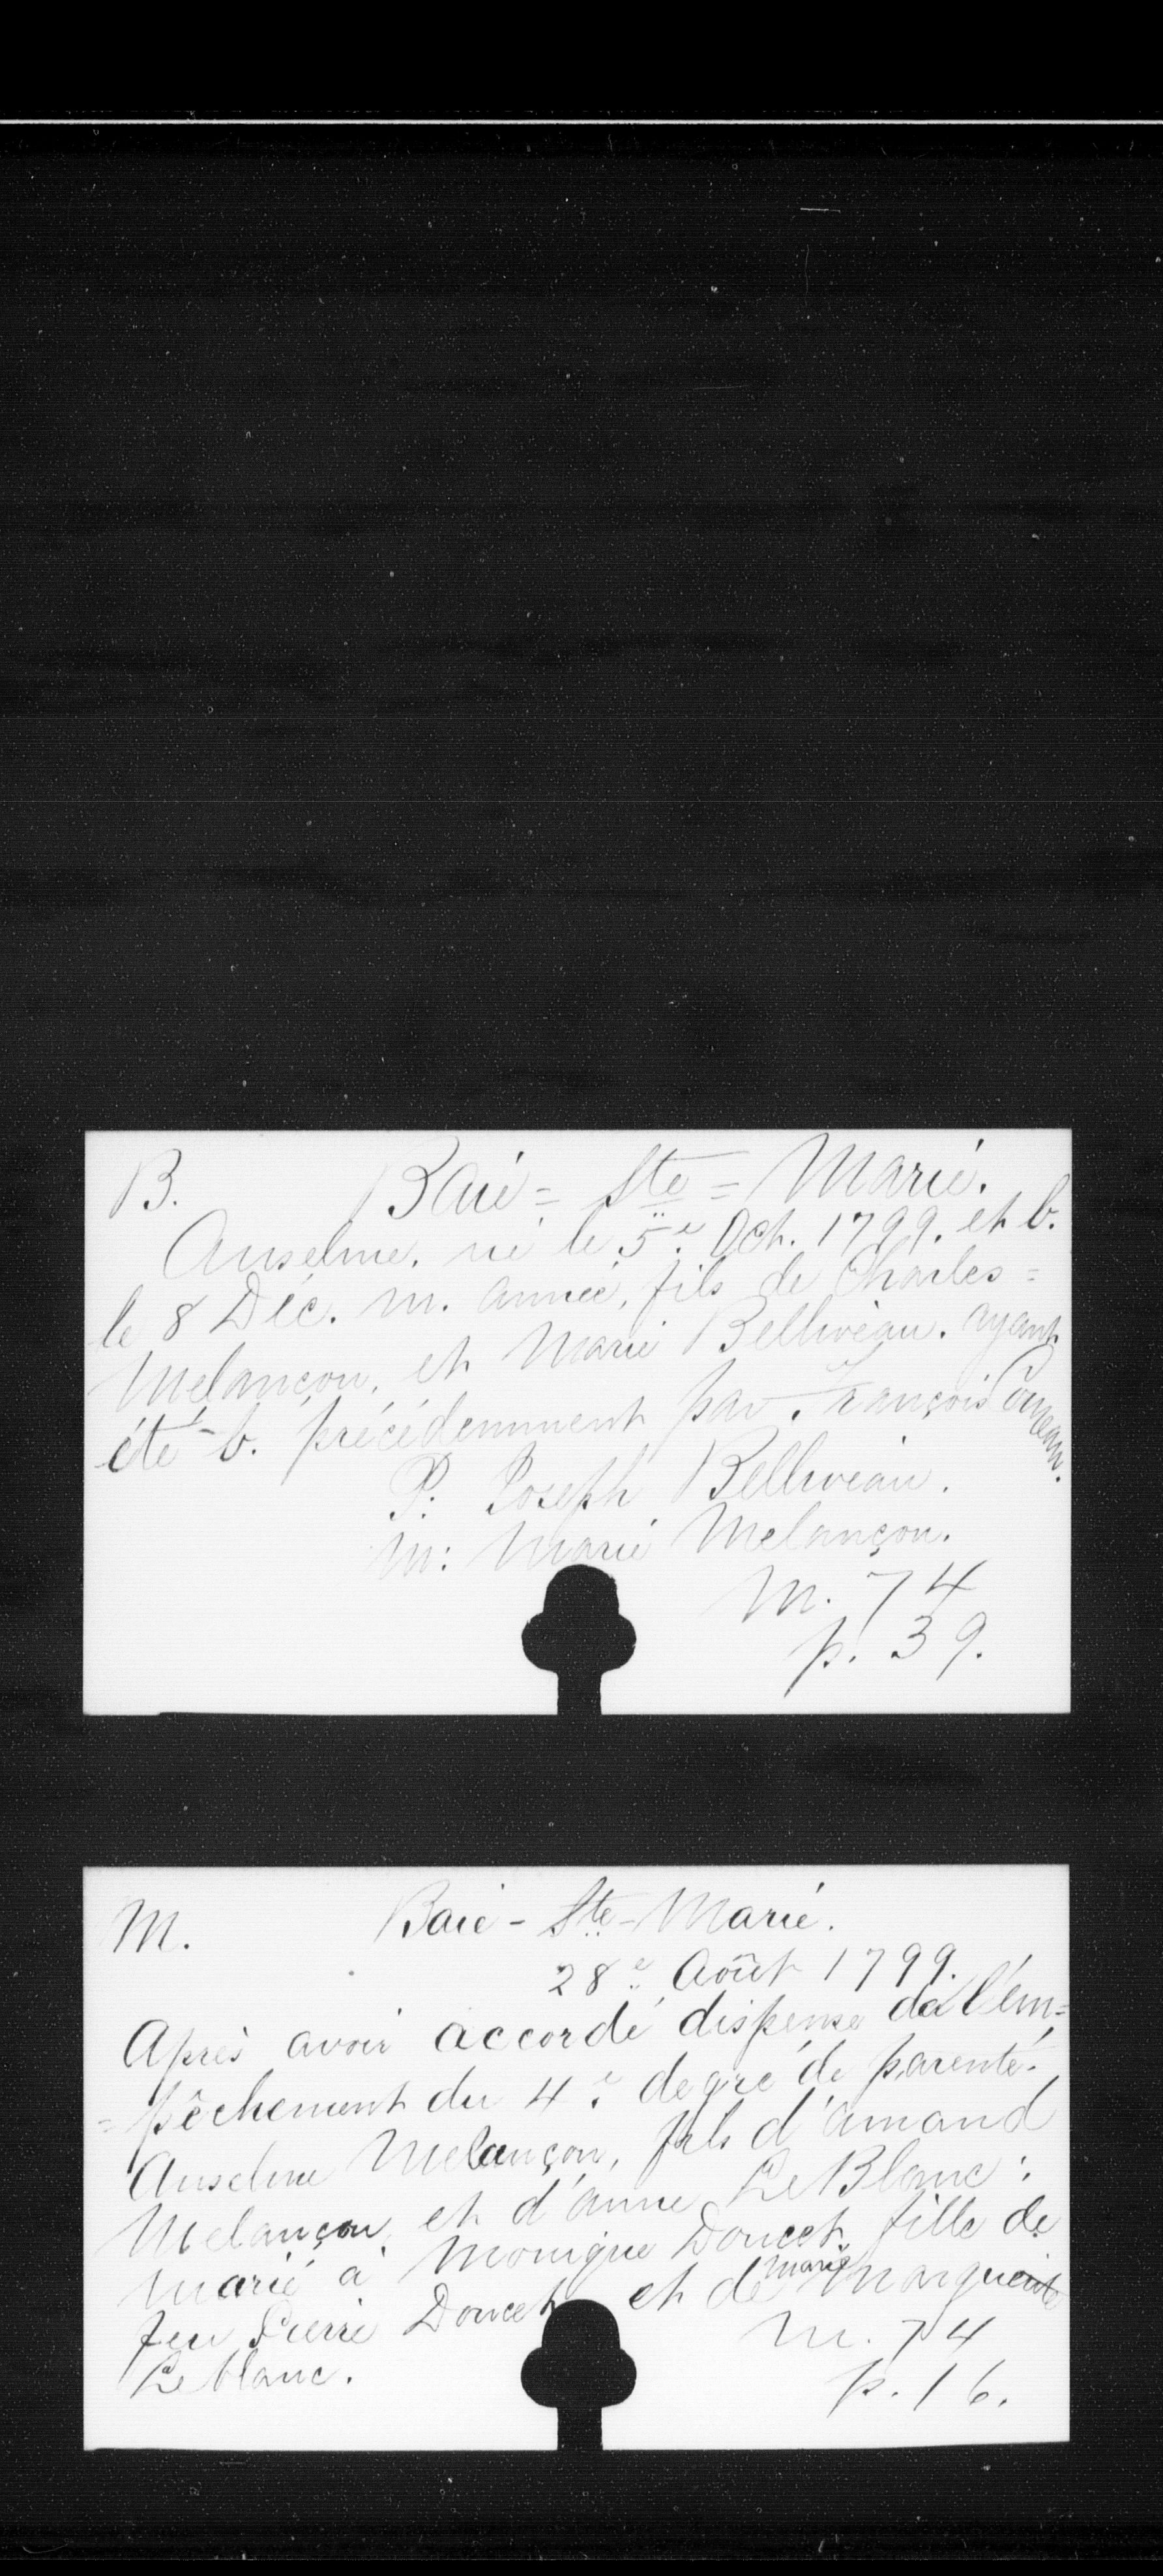 B. Baie = Ste = Marie.
Anselme, né le 5e Oct. 1799. et b.
le 8 Déc. m. année, fils de Charles =
Melançon, et Marie Belliveau. ayant
été b. précédemment par François Comeau.
P: Joseph Belliveau.
M: Marie Melançon.
M. 74
p. 39.
M. Baie - Ste - Marie.
28e Août 1799.
Après avoir accordé dispense de l'em=
=pêchement du 4e degré de parenté.
Anselme Melançon, fils d'amand
Melançon et d'anne LeBlanc;
marié à Monique Doucet, fille de
feu Pierre Doucet et de Marie Marguerite
LeBlanc.
M. 74
p. 16.